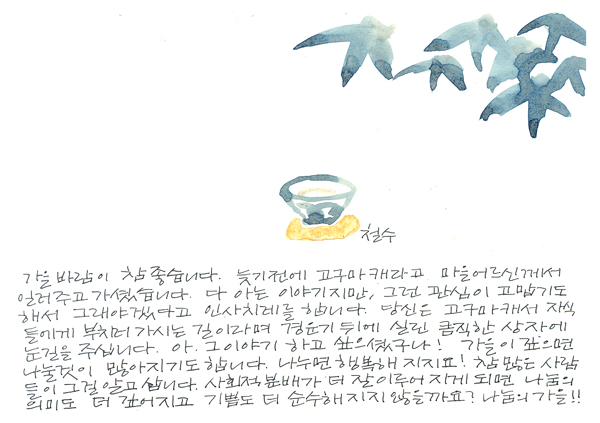 철수
가을 바람이 참 좋습니다. 늦기전에 고구마 캐라고 마을어르신께서
일러주고 가셨습니다. 다 아는 이야기지만, 그런 관심이 고맙기도
해서 그래야겠다고 인사치레를 합니다. 당신은 고구마캐서 자식
들에게 부치러 가시는 길이라며 경운기 뒤에 실린 큼직한 상자에
눈길을 주십니다. 아. 그이야기 하고 싶으셨구나! 가을이 깊으면
나눌것이 많아지기도 합니다. 나누면 행복해 지지요! 참 많은 사람
들이 그걸 알고 삽니다. 사회적분배가 더 잘이루어 지게 되면 나눔의
의미도 더 깊어지고 기쁨도 더 순수해지지 않을까요? 나눔의 가을!!